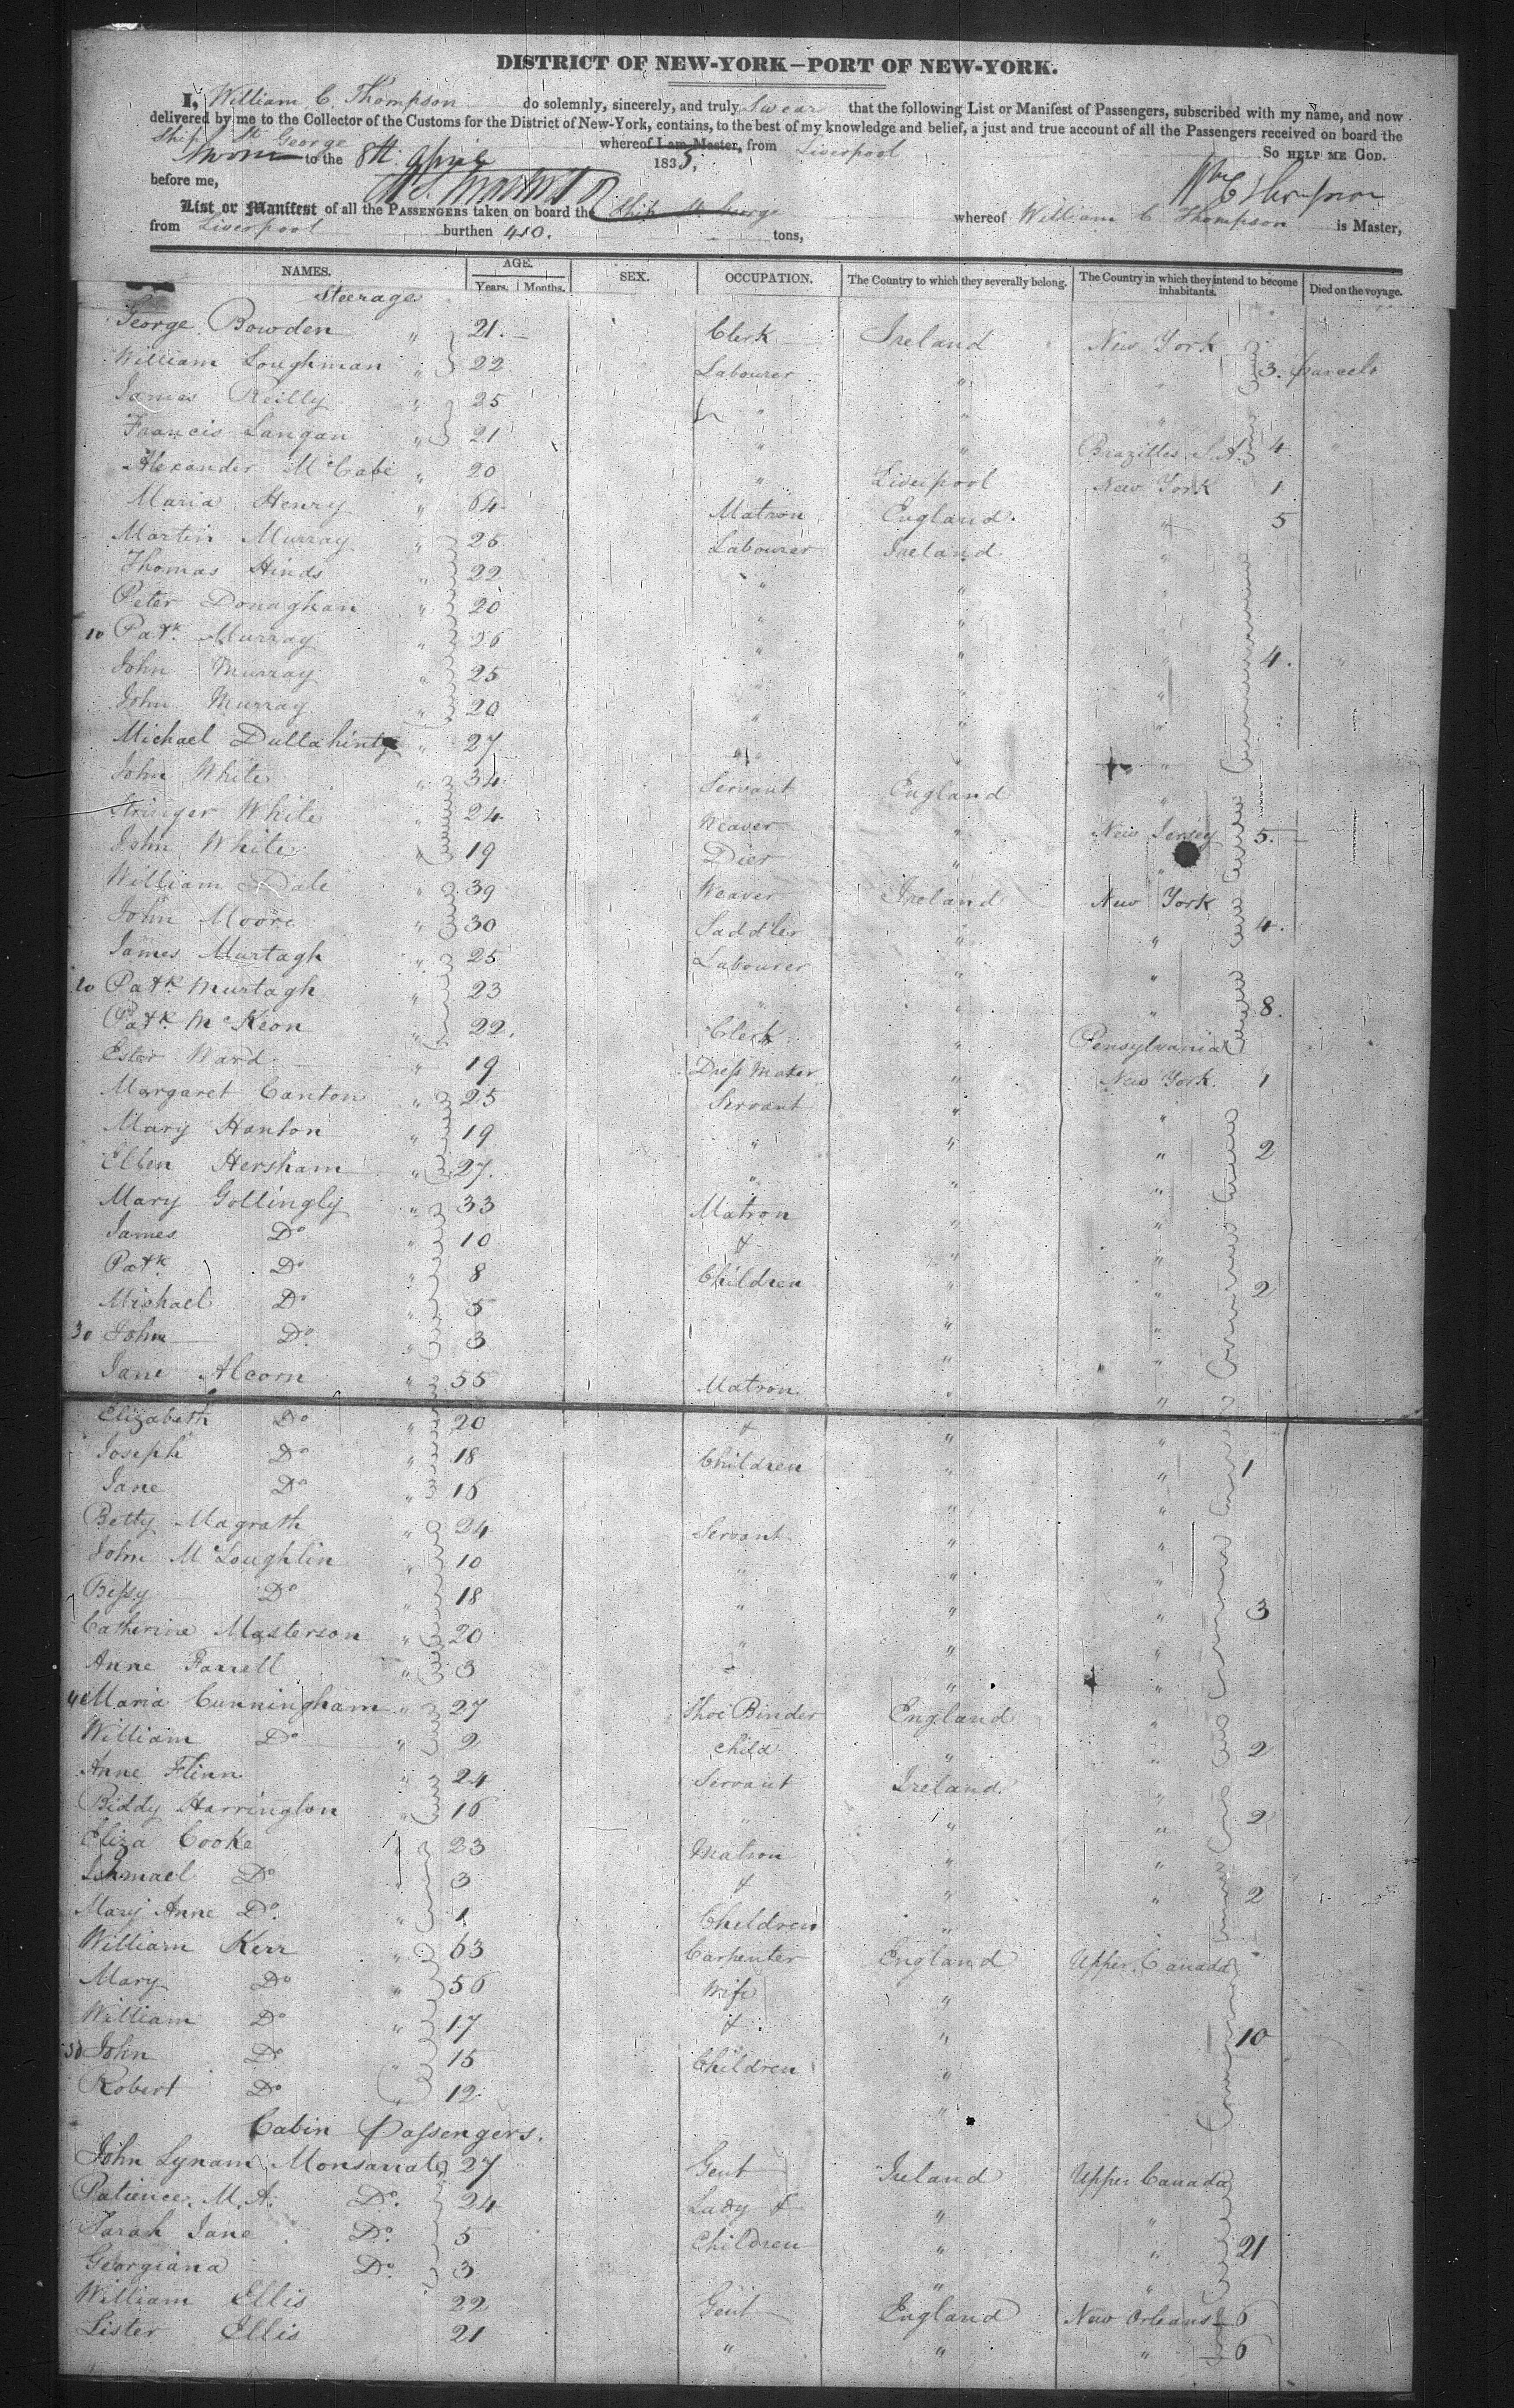 DISTRICT OF NEW-YORK—PORT OF NEW-YORK.
I, William C. Thompson do solemnly, sincerely, and truly Swear that the following List or Manifest of Passengers, subscribed with my name, and now
delivered by me to the Collector of the Customs for the District of New-York, contains, to the best of my knowledge and belief, a just and true account of all the Passengers received on board the
Ship St George whereof I am Master, from Liverpool
Sworn to the 8th April 1835, So HELP ME GOD.
before me, Wm C Thompson
List or Manifest of all the PASSENGERS taken on board the Ship St George whereof William C Thompson is Master,
from Liverpool burthen 410. tons,
NAMES. AGE. Years. Months. SEX. OCCUPATION. The Country to which they severally belong. The Country in which they intend to become inhabitants. Died on the voyage.
Steerage
George Bowden " 21. Clerk Ireland New York
William Loughman " 22 Labourer " " 3. parcels
James Reilly " 25 " " "
Francis Langan " 21 " " Brazilles S.A. 4 "
Alexander McCabe " 20 " Liverpool New York 1
Maria Henry " 64 Matron England. " 5
Martin Murray " 25 Labourer Ireland "
Thomas Hinds " 22 " " "
Peter Donaghan " 20 " " "
10 Patk Murray " 26 " " " 4. "
John Murray " 25 " " "
John Murray " 20 " " "
Michael Dullahinty " 27 " " "
John White " 34 Servant England "
Stringer White " 24 Weaver " New Jersey 5.
John White " 19 Dier " "
William Dale " 39 Weaver Ireland New York
John Moore " 30 Saddler " " 4.
James Murtagh " 25 Labourer " "
20 Patk Murtagh " 23 " " " 8.
Patk McKeon " 22. Clerk " Pensylvania
Ester Ward " 19 Dress Maker " New York 1
Margaret Canton " 25 Servant " "
Mary Hanlon " 19 " " " 2
Ellen Hersham " 27. " " "
Mary Gollingly " 33 Matron " "
James Do " 10 & " "
Patk Do " 8 Children " " 2
Michael Do " 5 " "
30 John Do " 3 " "
Jane Alcorn " 55 Matron " "
Elizabeth Do " 20 & " "
Joseph Do " 18 Children " " 1
Jane Do " 16 " "
Betty Magrath " 24 Servant " "
John McLoughlin " 10 " " "
Bessy Do " 18 " " " 3
Catherine Masterson " 20 " " "
Anne Farrell " 3 " "
40 Maria Cunningham " 27 Shoe Binder England "
William Do " 2 child " " 2
Anne Flinn " 24 Servant Ireland "
Biddy Harrington " 16 " " " 2
Eliza Cooke " 23 Matron " "
Ishmael Do " 3 & " " 2
Mary Anne Do " 1 Children "
William Kerr " 63 Carpenter England Upper Canada
Mary Do " 56 Wife "
William Do " 17 & " 10
50 John Do " 15 Children "
Robert Do 12 "
Cabin Passengers.
John Lynam Monsarrate 27 Gent Ireland Upper Canada
Patience M. A. Do. 24 Lady & " "
Sarah Jane Do. 5 Children " " 21
Georgiana Do. 3 " "
William Ellis 22 Gent England New Orleans 6
Lister Ellis 21 " " " 6